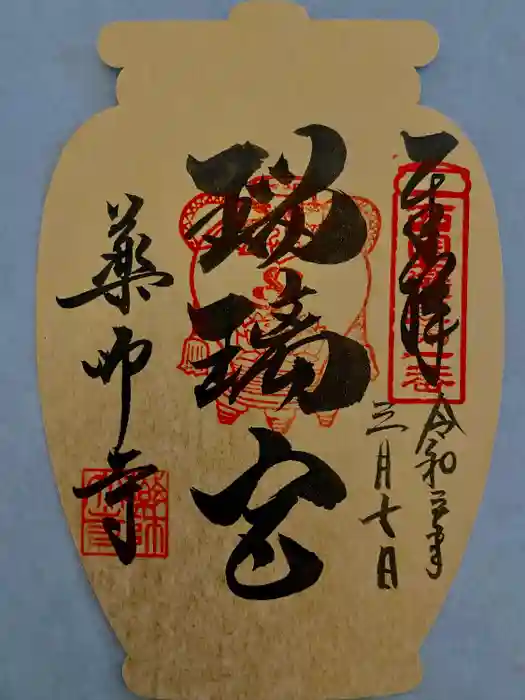 奉拝
令和三年
三月七日
瑠璃宮
薬師寺